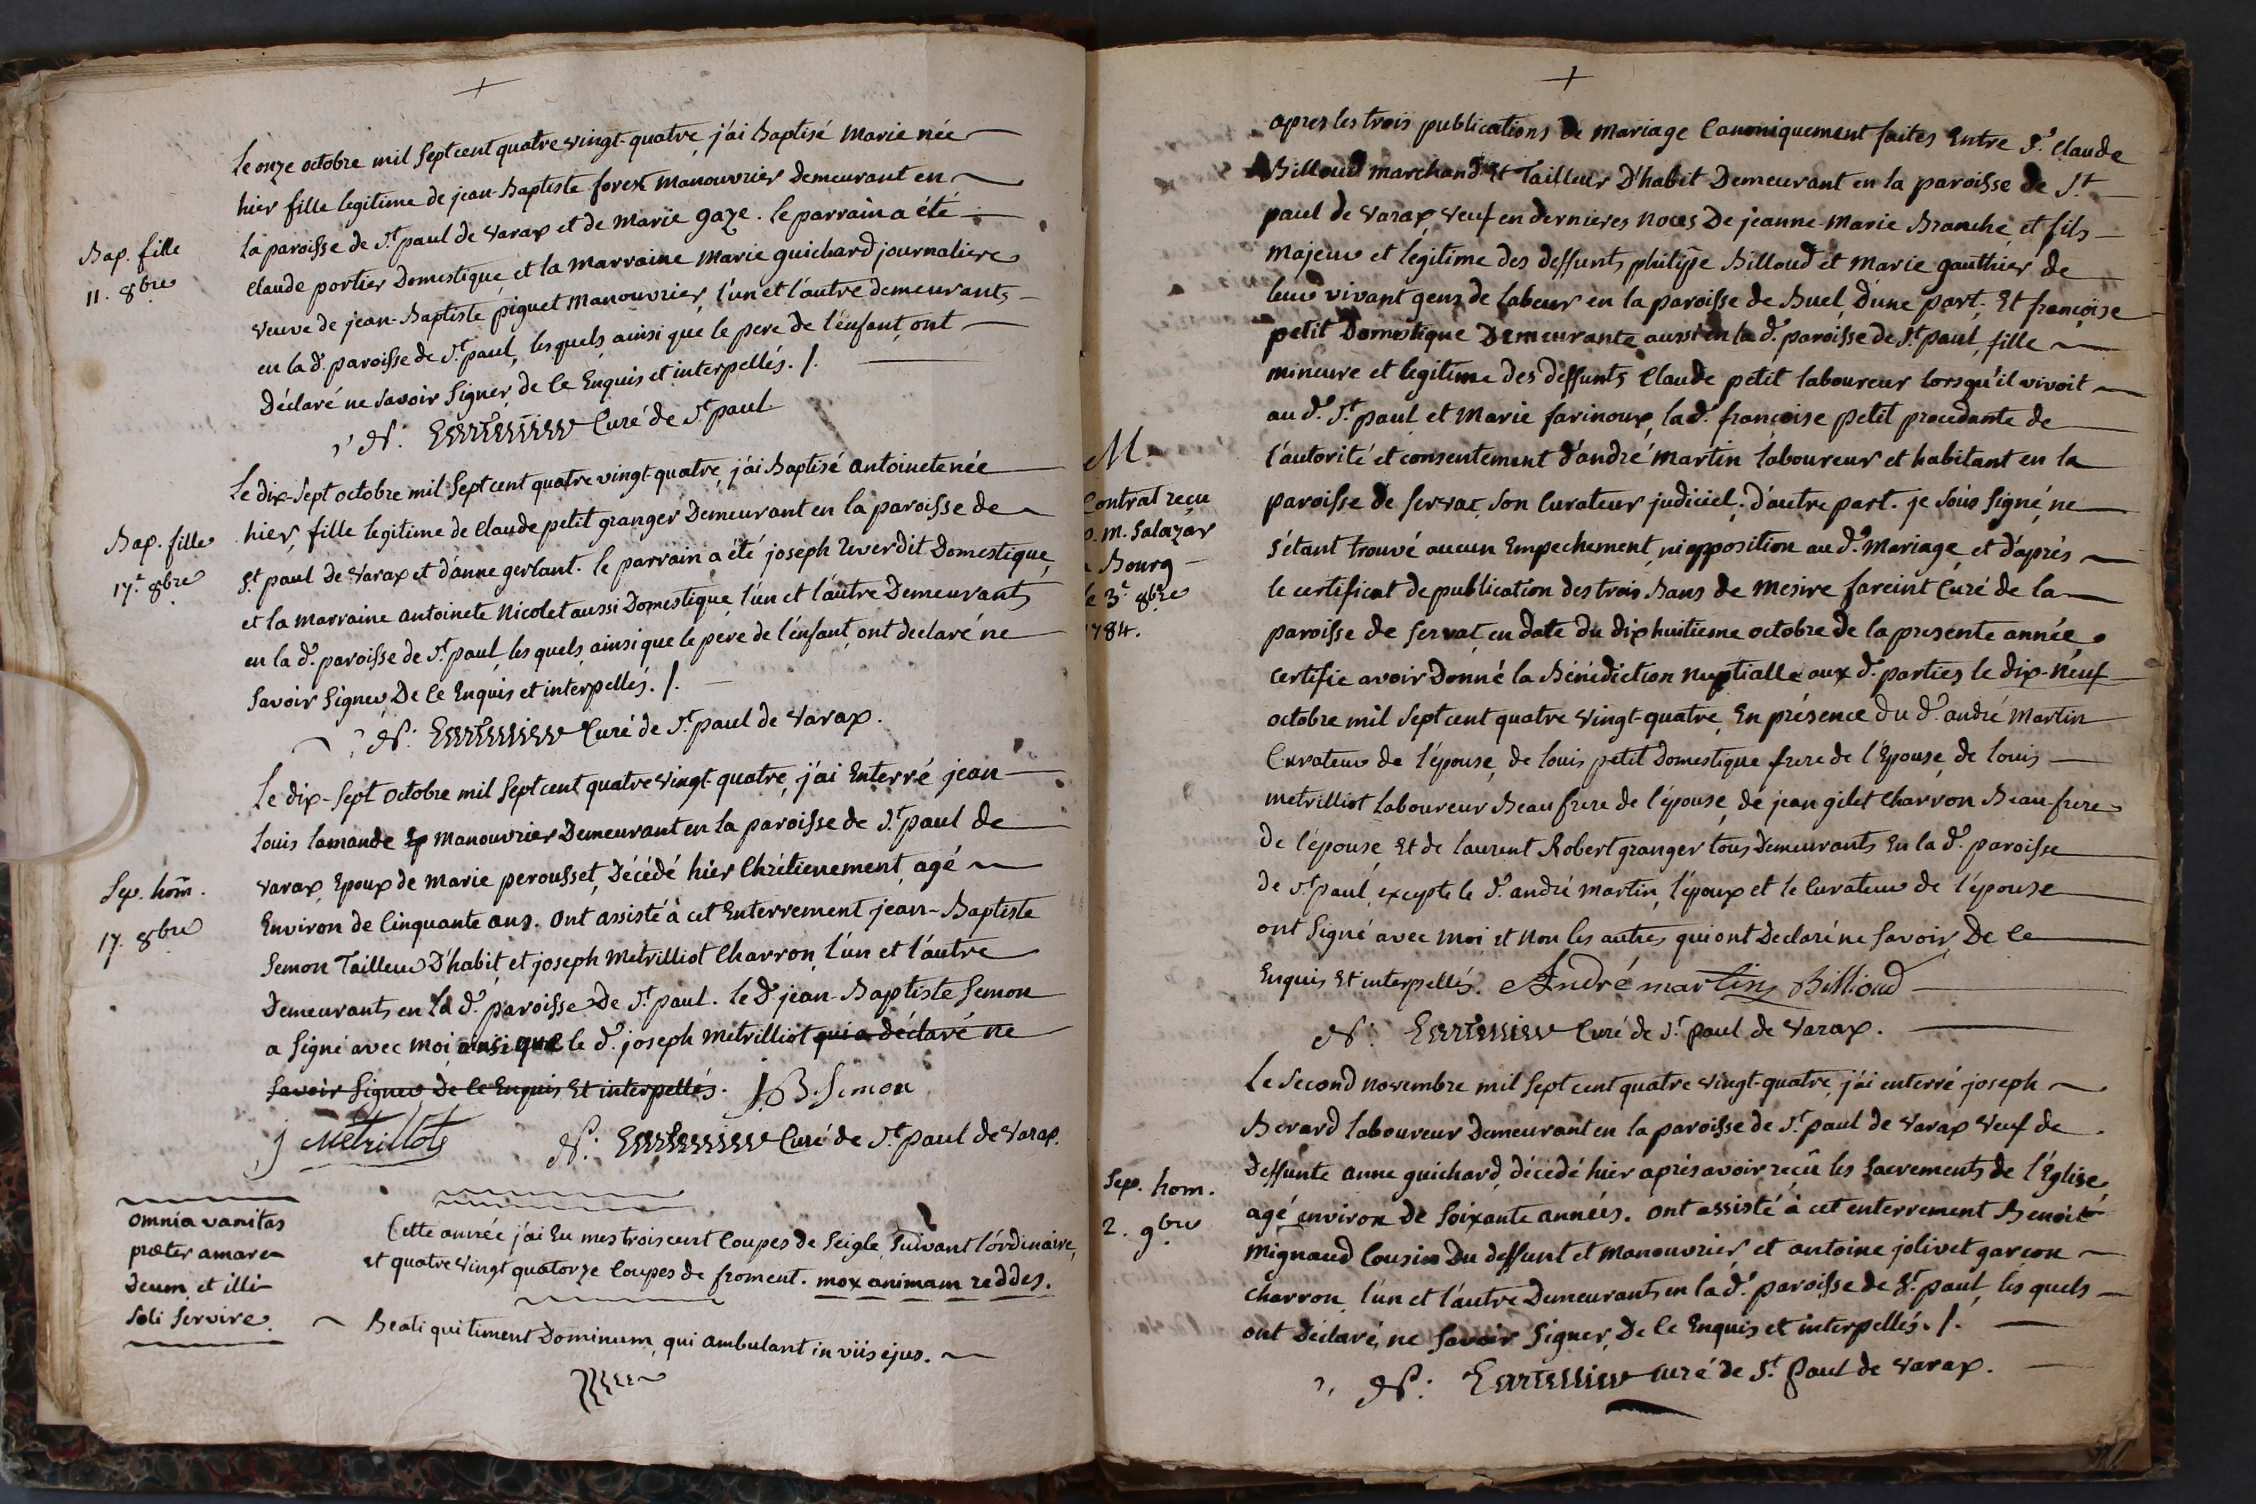 +
Le onze octobre mil Sept cent quatre vingt-quatre, j'ai Baptisé Marie née
hier fille legitime de jean-Baptiste forest manouvrier Demeurant en
la paroisse de St paul de varax et de Marie gaze. le parrain a été
Bap. fille
11. 8bre
claude portier Domestique, et la marraine Marie guichard journaliere
veuve de jean-Baptiste piguet manouvrier, l'un et l'autre demeurants
en la d. paroisse de St paul, les quels, ainsi que le pere de l'enfant, ont
Déclaré ne Savoir Signer, de Ce Enquis et interpellés. /.
Curé de St paul
Le dix-Sept octobre mil Sept cent quatre vingt-quatre, j'ai Baptisé antoinete née
Bap. fille
17e 8bre
hier, fille legitime de Claude petit granger Demeurant en la paroisse de
St paul de varax et d'anne gerlant. le parrain a été joseph Reverdit Domestique,
et la marraine antoinete Nicolet aussi Domestique, l'un et l'autre Demeurants
en la d. paroisse de St paul, les quels, ainsi que le pere de l'enfant, ont declaré ne
Savoir Signer, De Ce Enquis et interpellés. /.
Curé de St paul de varax.
Le dix-Sept octobre mil Sept cent quatre vingt-quatre, j'ai Enterré jean
Louis lamande manouvrier Demeurant en la paroisse de St paul de
Sep. hom.
17. 8bre
varax, Epoux de marie perousset, Décédé hier Chrétienement, agé
Environ de Cinquante ans. ont assisté à cet Enterrement jean-Baptiste
Semon Tailleur D'habit, et joseph Metrilliot Charron, l'un et l'autre
Demeurants en la d. paroisse De St paul. le d. jean-Baptiste Semon
a Signé avec moi ainsi que le d. joseph Metrilliot qui a déclaré ne
Savoir Signer, De Ce Enquis Et interpellés. J B. Semon
j Metrillot Curé de St paul de Varax.
omnia vanitas
præter amare
Deum, et illi
Soli Servire.
Cette année j'ai Eu mes trois cent Coupes de Seigle Suivant l'ordinaire,
et quatre vingt quatorze Coupes de froment. mox animam reddes.
Beati qui timent Dominum, qui ambulant in viis ejus.
+
apres les trois publications De mariage Canoniquement faites Entre Sr. Claude
Billoud marchand Et Tailleur D'habit Demeurant en la paroisse de St
paul de varax, veuf en dernieres Noces De jeanne-marie Branche, et fils
majeur et legitime des deffunts philippe Billoud et Marie gauthier de
leur vivant gens de labeur en la paroisse de Buel, D'une part; Et françoise
petit Domestique Demeurante aussi en la d. paroisse de St paul, fille
mineure et legitime des deffunts Claude petit laboureur lorsqu'il vivoit
au d. St paul et Marie farinoux, la d. françoise petit procedante de
M
Contrat reçu
p. m. Salazar
a Bourg
le 3e 8bre
1784.
l'autorité et consentement d'andré martin laboureur et habitant en la
paroisse de Servat, Son Curateur judiciel, d'autre part. je Sous Signé, ne
S'étant trouvé aucun Empechement, ni opposition au d. mariage, et d'aprés
le certificat de publication des trois Bans de mesire fareint Curé de la
paroisse de Servat, en date du dix huitieme octobre de la presente année,
certifie avoir Donné la Bénédiction Nuptialle aux d. parties le dix-neuf
octobre mil Sept cent quatre vingt-quatre, En présence du d. andré Martin
Curateur de l'épouse, de louis petit Domestique frere de l'Epouse, de louis
metrilliot laboureur Beaufrere de l'épouse, de jean gilet Charron Beaufrere
de l'épouse, Et de laurent Robert granger tous Demeurants En la d. paroisse
de St paul, excepté le d. andré martin, l'époux et le Curateur de l'épouse
ont Signé avec moi et Non les autres qui ont Declaré ne Savoir, De Ce
Enquis Et interpellés. André martin Billioud
Curé de St paul de varax.
Le Second novembre mil Sept cent quatre vingt-quatre, j'ai enterré joseph
Berard laboureur Demeurant en la paroisse de St paul de varax veuf de
Sep. hom.
2. 9bre
Deffunte anne guichard, décédé hier aprés avoir reçû les Sacrements de l'Eglise,
agé environ de Soixante années. ont assisté à cet enterrement Benoit
mignaud Cousin Du deffunt et manouvrier, et antoine jolivet garçon
charron, l'un et l'autre Demeurants en la d. paroisse de St paul, les quels
ont Déclaré, ne Savoir Signer, De Ce Enquis et interpellés. /.
curé de St paul de varax.